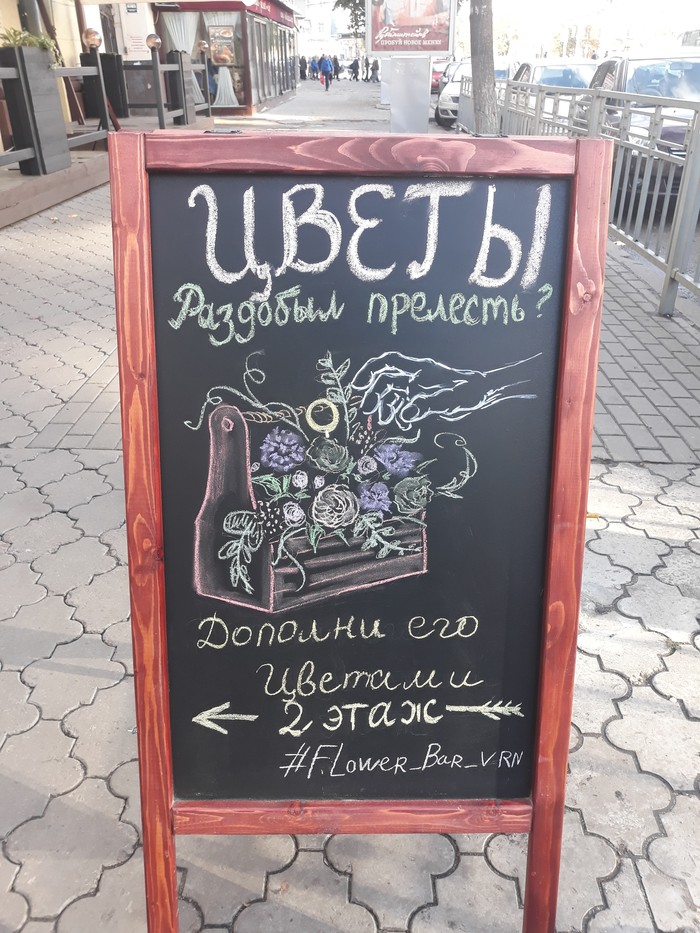 ПРОБУЙ НОВОЕ МЕНЮ!
ЦВЕТЫ
Раздобыл прелесть?
Дополни его
Цветами
2 этаж
#FLower_Bar_VRN